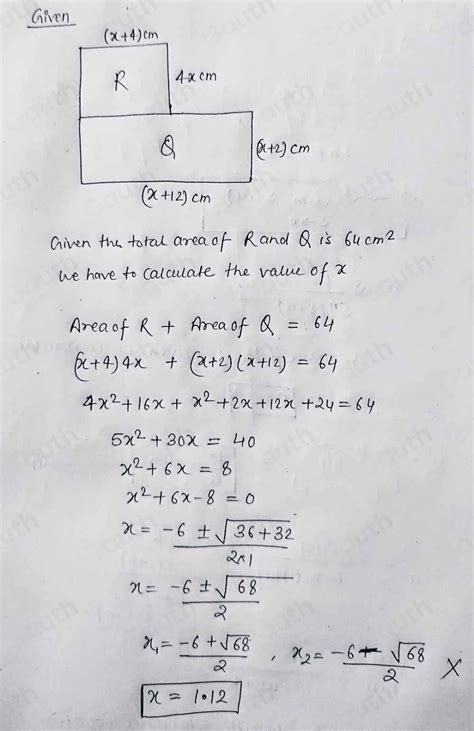 Given
(x+4)cm
R
4x cm
Q
(x+2) cm
(x+12) cm
Given the total area of R and Q is 64 cm²
we have to calculate the value of x
Area of R + Area of Q = 64
(x+4)4x + (x+2)(x+12) = 64
4x²+16x + x²+2x+12x+24=64
5x²+30x = 40
x²+6x = 8
x²+6x-8=0
x = -6 ± √36+32 / 2×1
x = -6 ± √68 / 2
x₁ = -6+√68 / 2 , x₂ = -6-√68 / 2 X
x = 1.12